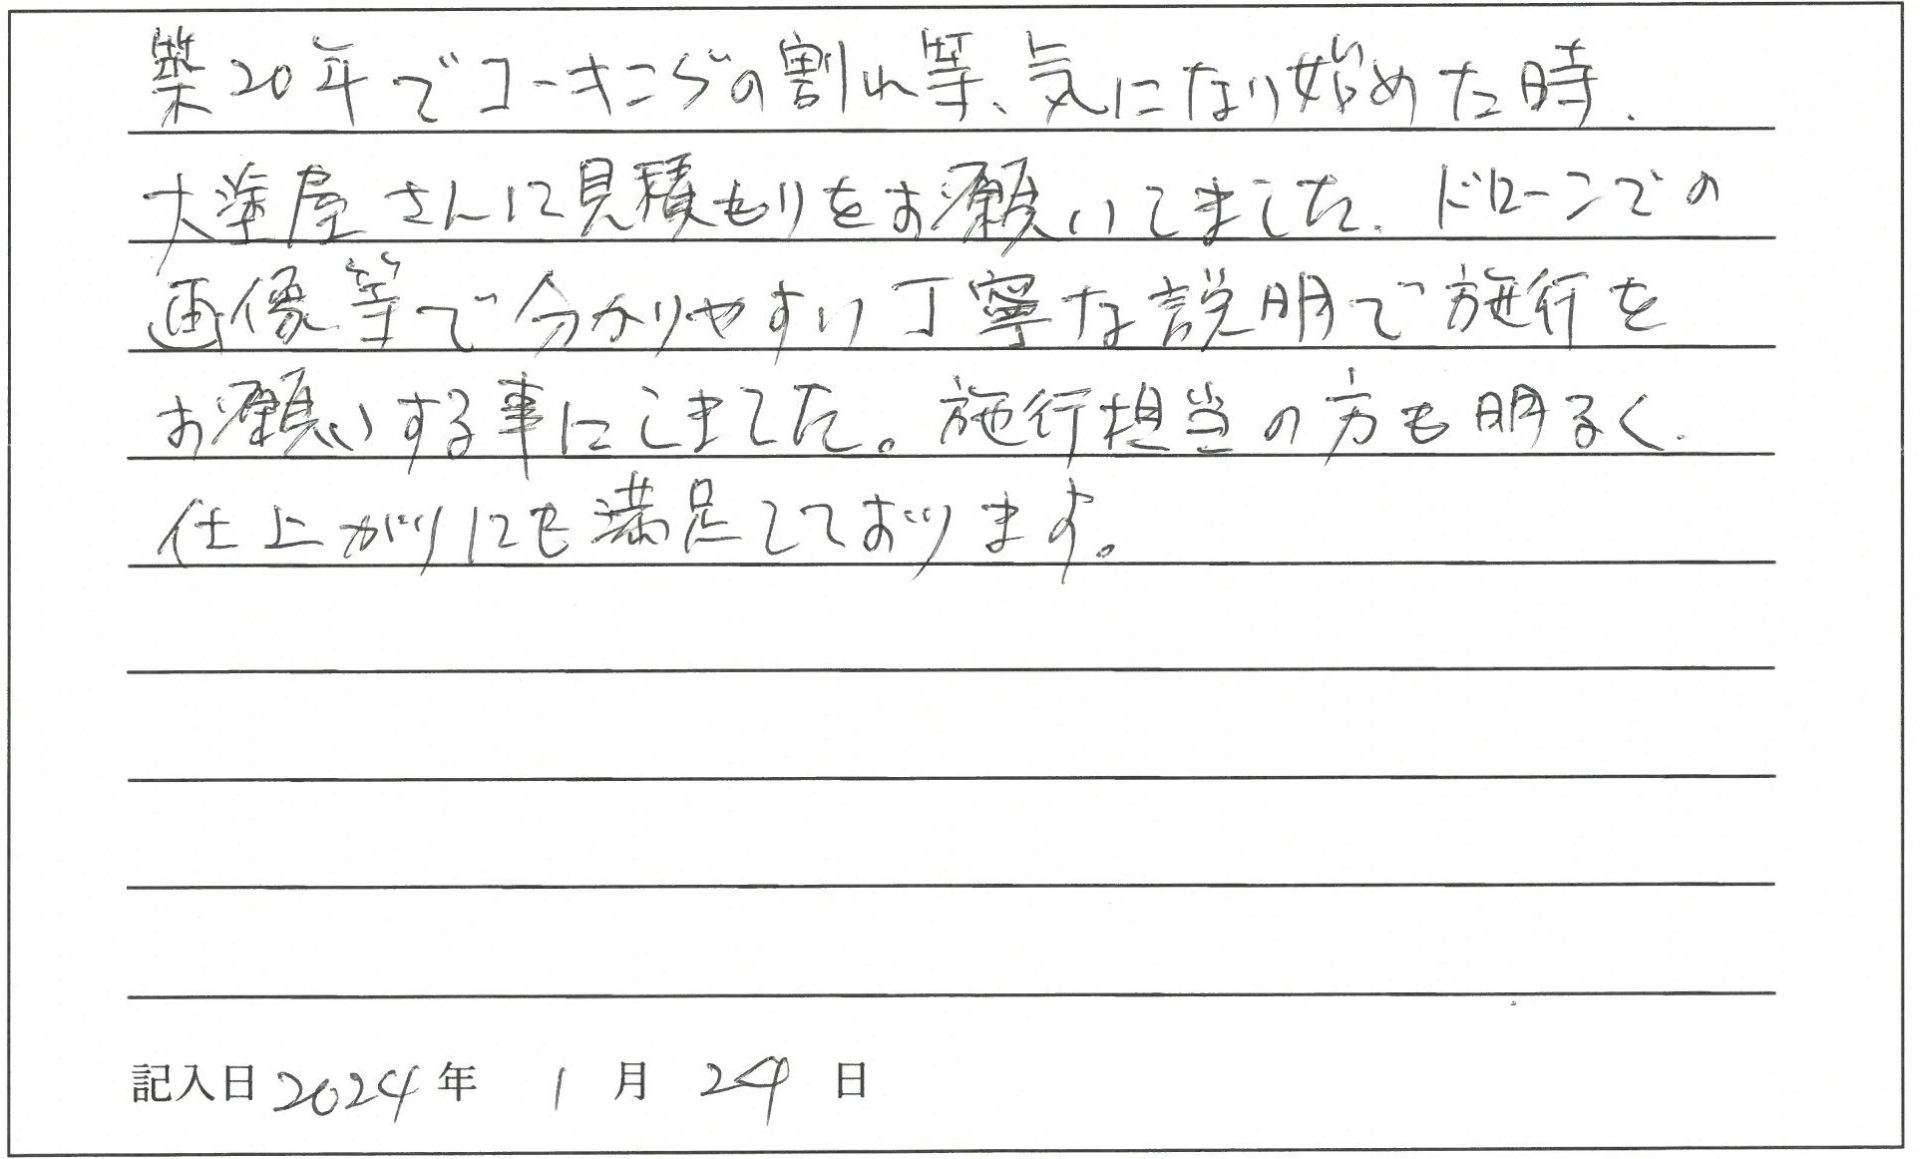 築20年でコーキングの割れ等、気になり始めた時、
大塗屋さんに見積もりをお願いしました。ドローンでの
画像等で分かりやすい丁寧な説明で施行を
お願いする事にしました。施行担当の方も明るく、
仕上がりにも満足しております。
記入日 2024年 1月 24日